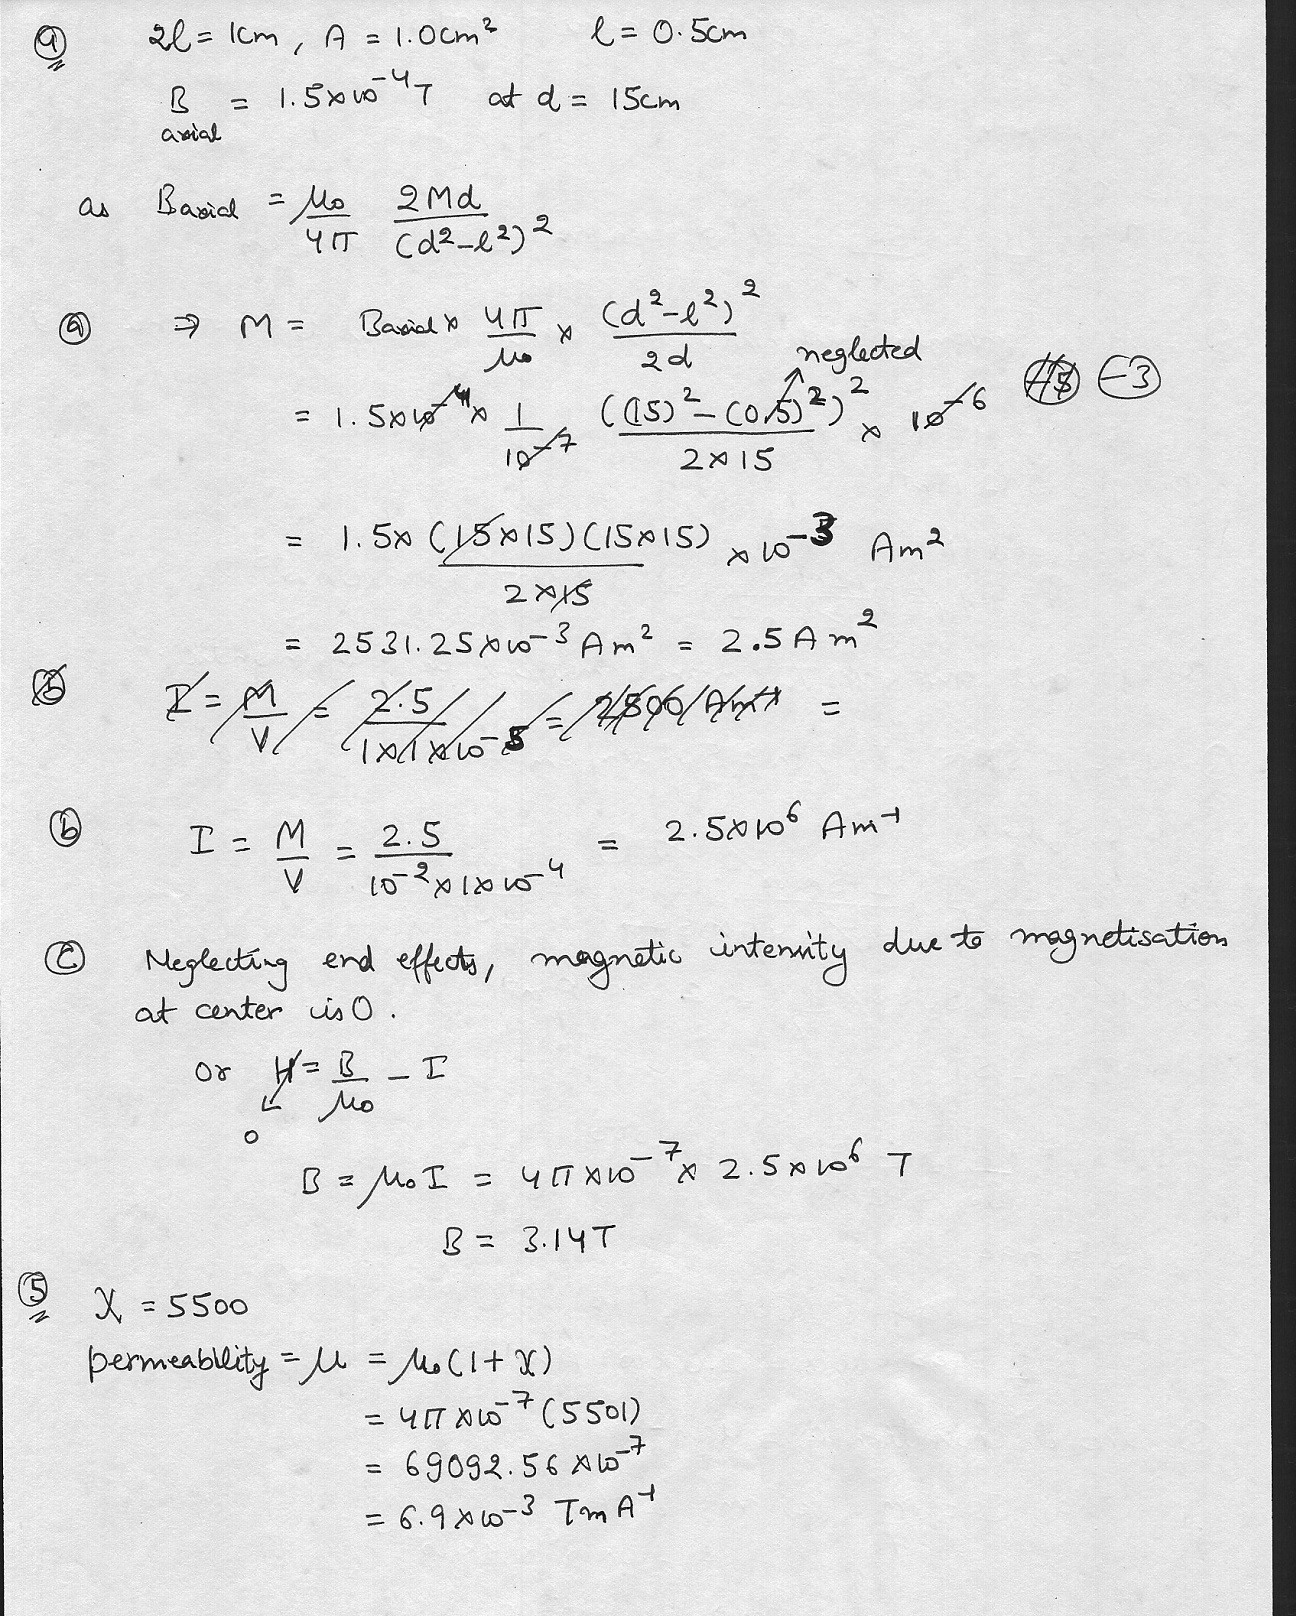 ④ 2l = 1cm , A = 1.0cm² l = 0.5cm
B axial = 1.5×10⁻⁴T at d = 15cm
as Baxial = μ₀/4π 2Md/(d²-l²)²
ⓐ ⇒ M = Baxial × 4π/μ₀ × (d²-l²)²/2d
neglected
= 1.5×10⁻⁴ × 1/10⁻⁷ ((15)²-(0.5)²)²/2×15 × 10⁻⁶ -3
= 1.5×(15×15)(15×15)/2×15 ×10⁻³ Am²
= 2531.25×10⁻³ Am² = 2.5Am²
b I = M/V = 2.5/1×1×10⁻⁵ = 2500 Am⁻¹ =
ⓑ I = M/V = 2.5/10⁻²×1×10⁻⁴ = 2.5×10⁶ Am⁻¹
ⓒ Neglecting end effects, magnetic intensity due to magnetisation
at center is 0.
or H = B/μ₀ - I
0
B = μ₀I = 4π×10⁻⁷× 2.5×10⁶ T
B = 3.14T
⑤ χ = 5500
permeability = μ = μ₀(1+χ)
= 4π×10⁻⁷(5501)
= 69092.56×10⁻⁷
= 6.9×10⁻³ TmA⁻¹